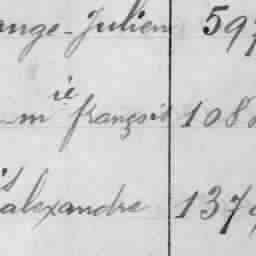 ange-Julien 597
m ie françois 108
s alexandre 137